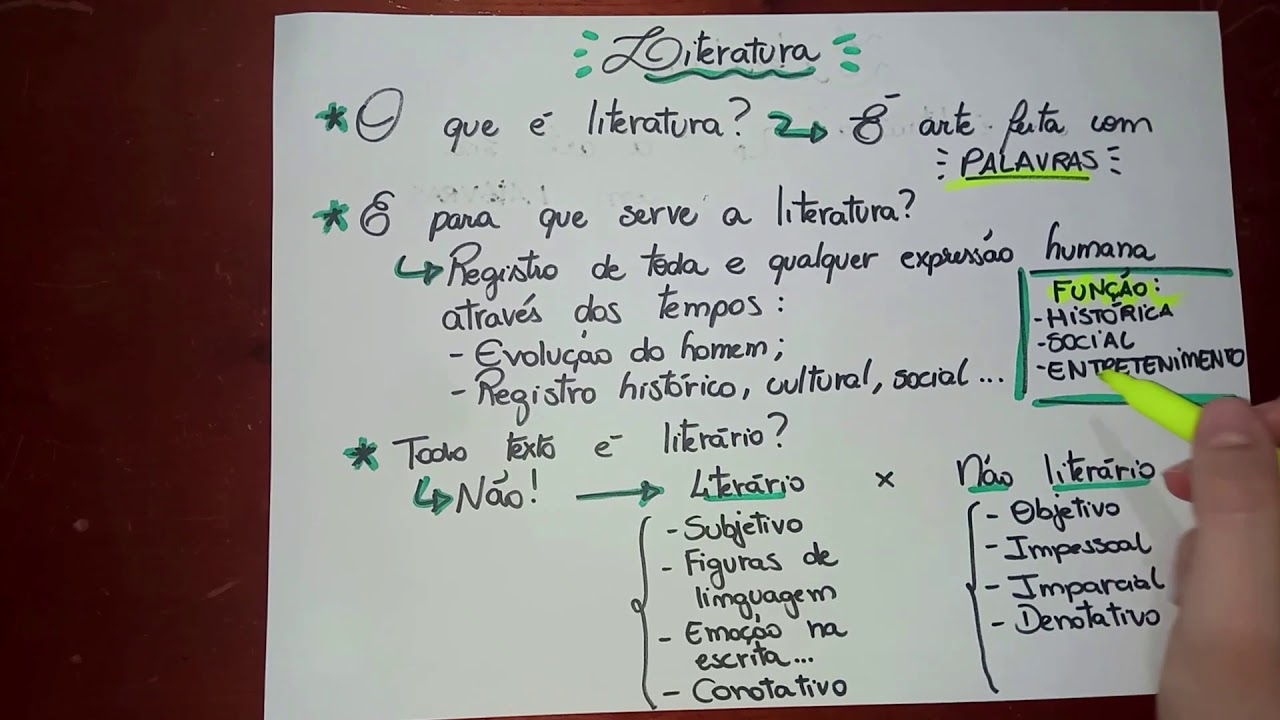 Literatura
* O que é literatura? É arte feita com
PALAVRAS
* E para que serve a literatura?
Registro de toda e qualquer expressão humana
através dos tempos:
- Evolução do homem;
- Registro histórico, cultural, social...
FUNÇÃO:
- HISTÓRICA
- SOCIAL
- ENTRETENIMENTO
* Todo texto é literário?
Não! → Literário x Não literário
- Subjetivo
- Figuras de
linguagem
- Emoção na
escrita...
- Conotativo
- Objetivo
- Impessoal
- Imparcial
- Denotativo